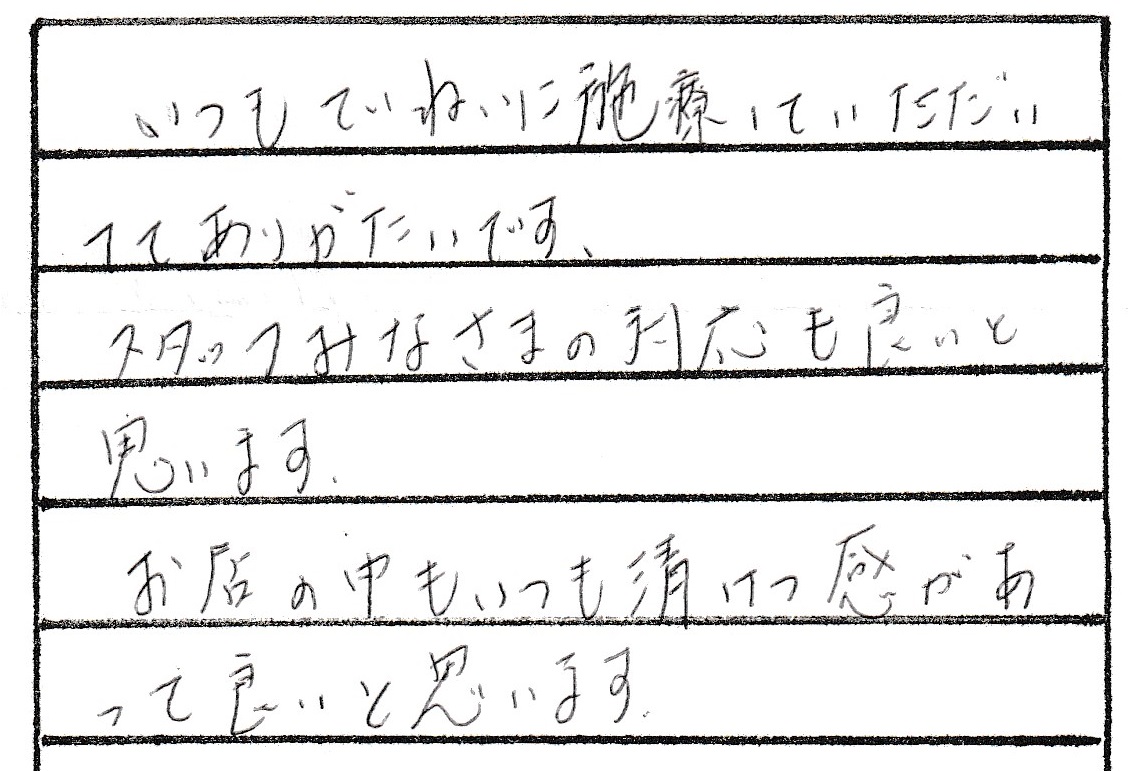 いつもていねいに施療していただい
てて ありがたいです、
スタッフみなさまの対応も良いと
思います.
お店の中もいつも清けつ感があ
って良いと思います.